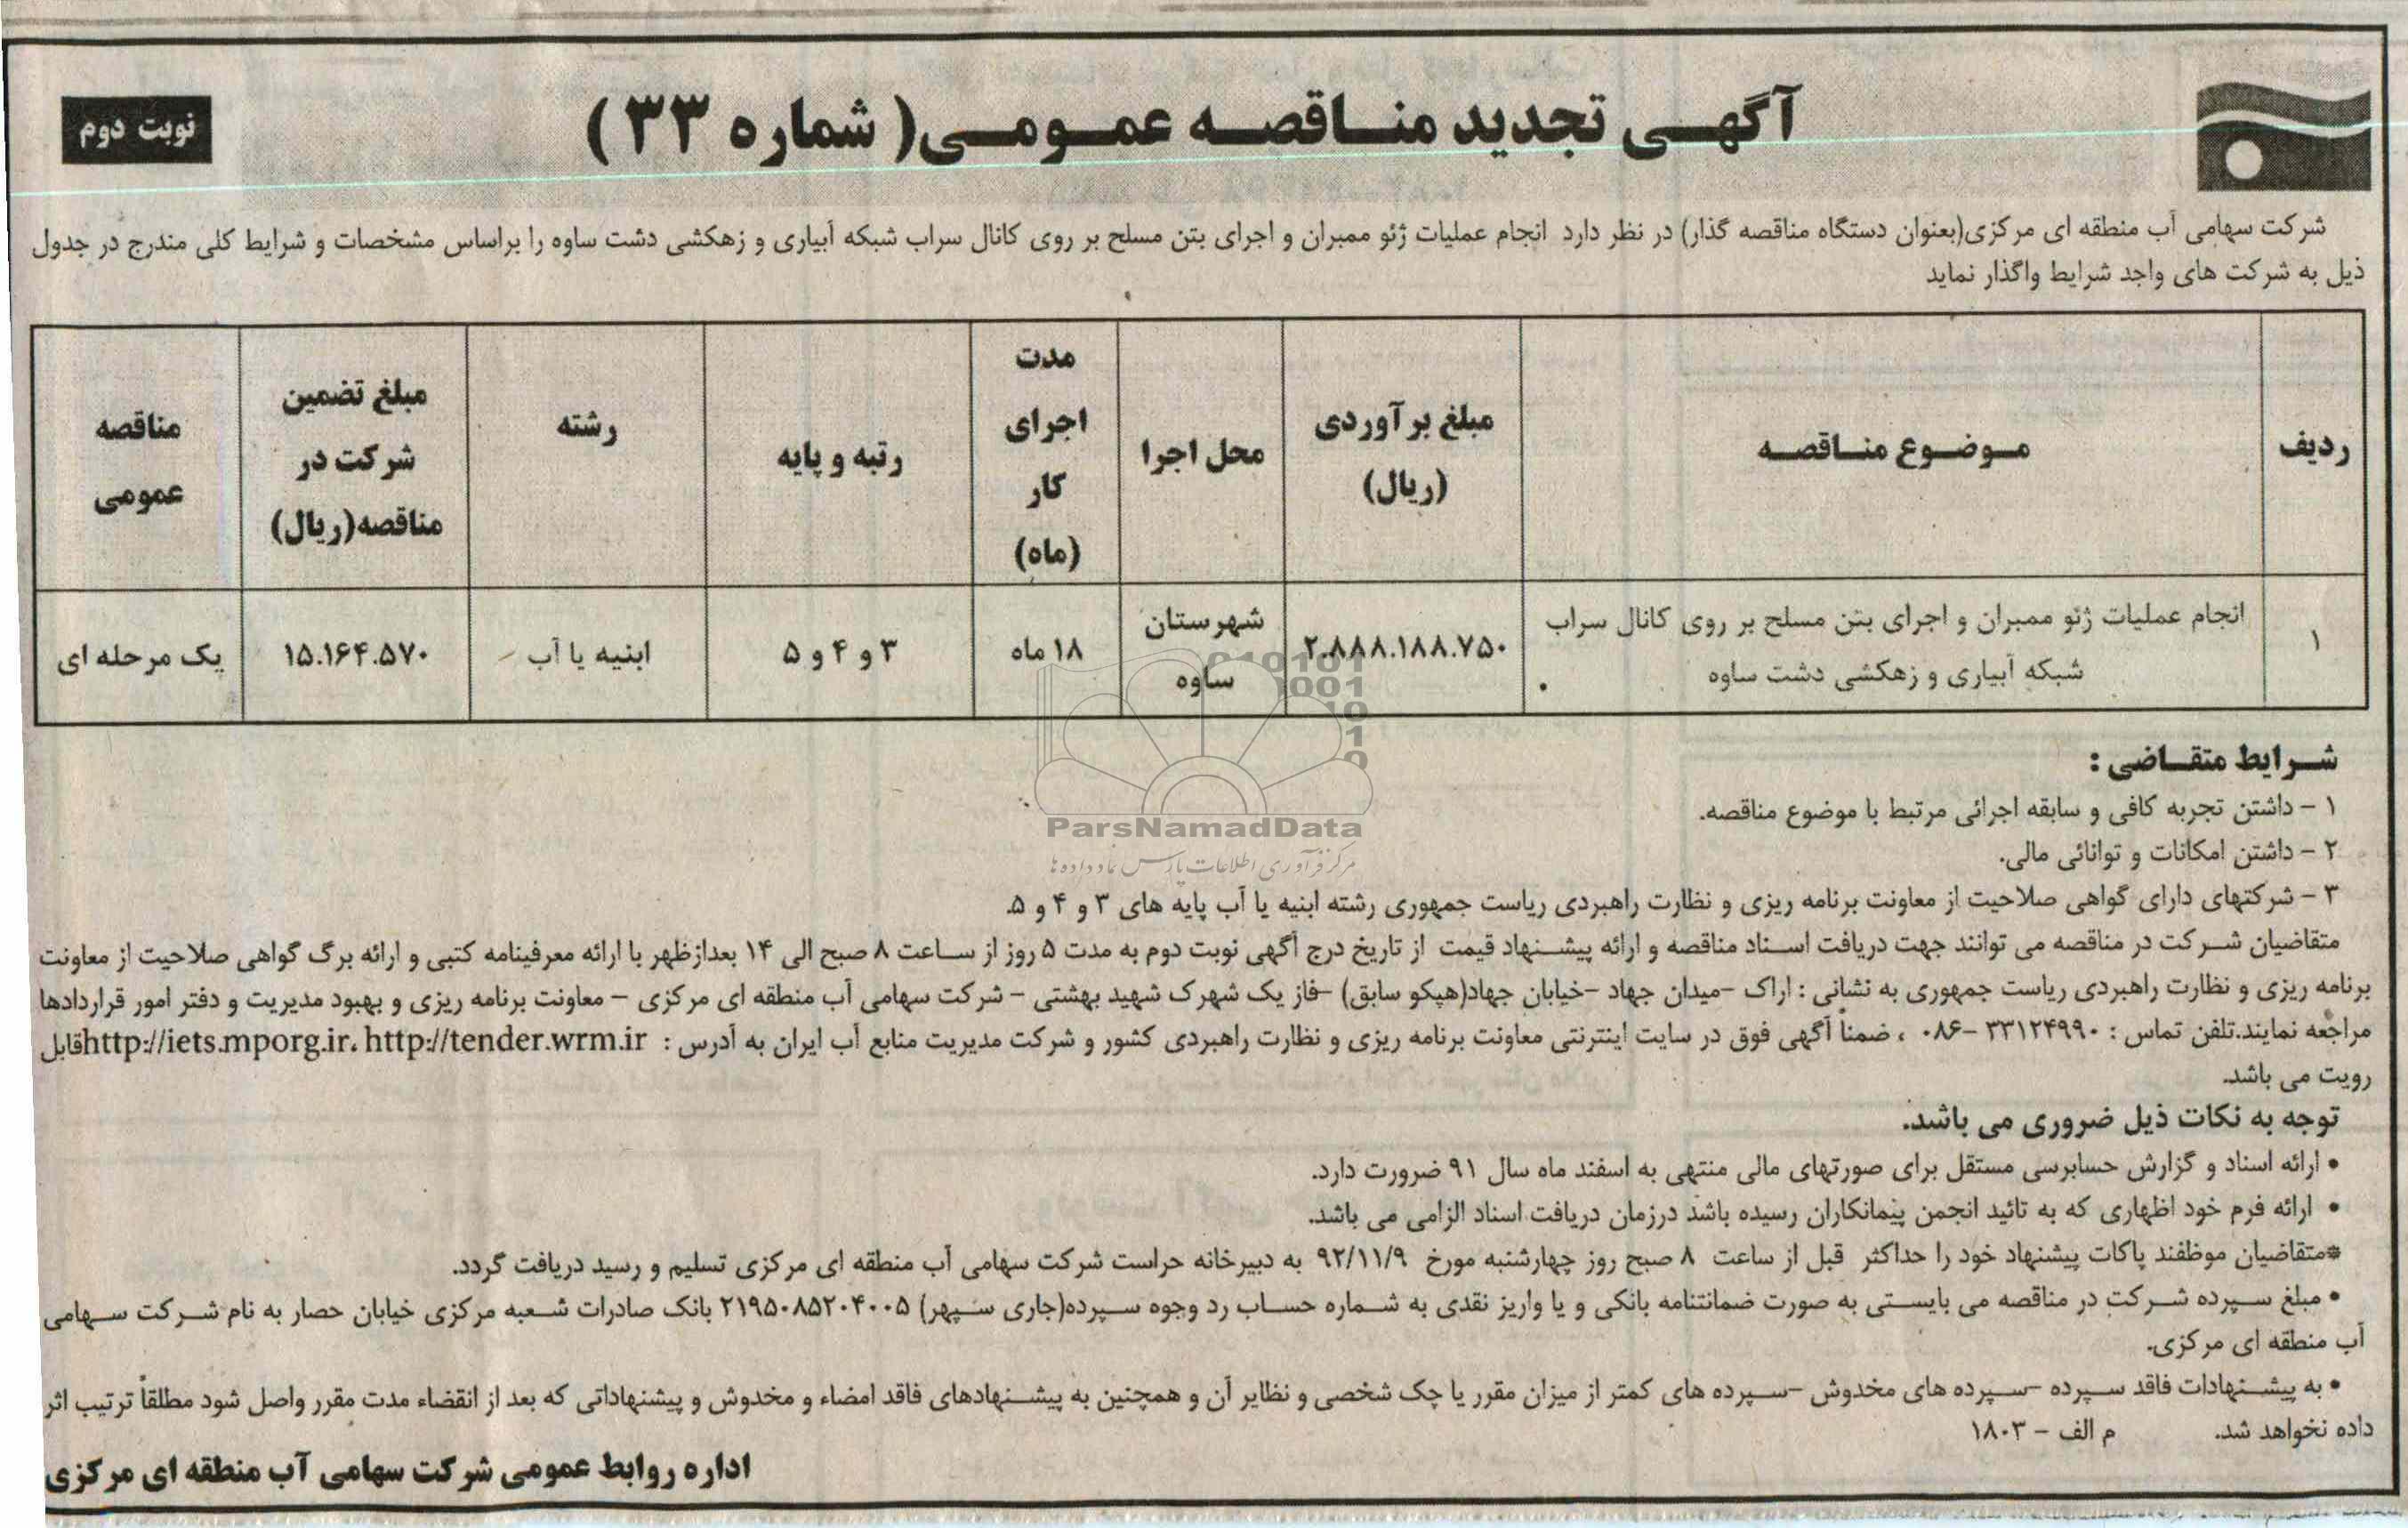 آگهی تجدید مناقصه عمومی( شماره ۳۳)
نوبت دوم
شرکت سهامی آب منطقه ای مرکزی(بعنوان دستگاه مناقصه گذار) در نظر دارد انجام عملیات ژئو ممبران و اجرای بتن مسلح بر روی کانال سراب شبکه آبیاری و زهکشی دشت ساوه را براساس مشخصات و شرایط کلی مندرج در جدول
ذیل به شرکت های واجد شرایط واگذار نماید
ردیف
موضوع مناقصه
مبلغ برآوردی
(ریال)
محل اجرا
مدت
اجرای
کار
(ماه)
رتبه و پایه
رشته
مبلغ تضمین
شرکت در
مناقصه(ریال)
مناقصه
عمومی
۱
انجام عملیات ژئو ممبران و اجرای بتن مسلح بر روی کانال سراب
شبکه آبیاری و زهکشی دشت ساوه
۲.۸۸۸.۱۸۸.۷۵۰
شهرستان
ساوه
۱۸ ماه
۳ و ۴ و ۵
ابنیه یا آب
۱۵.۱۶۴.۵۷۰
یک مرحله ای
شرایط متقاضی :
۱ - داشتن تجربه کافی و سابقه اجرائی مرتبط با موضوع مناقصه.
۲ - داشتن امکانات و توانائی مالی.
۳ - شرکتهای دارای گواهی صلاحیت از معاونت برنامه ریزی و نظارت راهبردی ریاست جمهوری رشته ابنیه یا آب پایه های ۳ و ۴ و ۵.
متقاضیان شرکت در مناقصه می توانند جهت دریافت اسناد مناقصه و ارائه پیشنهاد قیمت از تاریخ درج آگهی نوبت دوم به مدت ۵ روز از ساعت ۸ صبح الی ۱۴ بعدازظهر با ارائه معرفینامه کتبی و ارائه برگ گواهی صلاحیت از معاونت
برنامه ریزی و نظارت راهبردی ریاست جمهوری به نشانی : اراک -میدان جهاد -خیابان جهاد(هپکو سابق) -فاز یک شهرک شهید بهشتی - شرکت سهامی آب منطقه ای مرکزی - معاونت برنامه ریزی و بهبود مدیریت و دفتر امور قراردادها
مراجعه نمایند.تلفن تماس : ۳۳۱۲۴۹۹۰ -۰۸۶ ، ضمناً آگهی فوق در سایت اینترنتی معاونت برنامه ریزی و نظارت راهبردی کشور و شرکت مدیریت منابع آب ایران به آدرس : http://iets.mporg.ir، http://tender.wrm.ir قابل
رویت می باشد.
توجه به نکات ذیل ضروری می باشد.
• ارائه اسناد و گزارش حسابرسی مستقل برای صورتهای مالی منتهی به اسفند ماه سال ۹۱ ضرورت دارد.
• ارائه فرم خود اظهاری که به تائید انجمن پیمانکاران رسیده باشد درزمان دریافت اسناد الزامی می باشد.
*متقاضیان موظفند پاکات پیشنهاد خود را حداکثر قبل از ساعت ۸ صبح روز چهارشنبه مورخ ۹۲/۱۱/۹ به دبیرخانه حراست شرکت سهامی آب منطقه ای مرکزی تسلیم و رسید دریافت گردد.
• مبلغ سپرده شرکت در مناقصه می بایستی به صورت ضمانتنامه بانکی و یا واریز نقدی به شماره حساب رد وجوه سپرده(جاری سپهر) ۲۱۹۵۰۸۵۲۰۴۰۰۵ بانک صادرات شعبه مرکزی خیابان حصار به نام شرکت سهامی
آب منطقه ای مرکزی.
• به پیشنهادات فاقد سپرده -سپرده های مخدوش -سپرده های کمتر از میزان مقرر یا چک شخصی و نظایر آن و همچنین به پیشنهادهای فاقد امضاء و مخدوش و پیشنهاداتی که بعد از انقضاء مدت مقرر واصل شود مطلقاً ترتیب اثر
داده نخواهد شد. م الف - ۱۸۰۳
اداره روابط عمومی شرکت سهامی آب منطقه ای مرکزی
ParsNamadData
مرکز فرآوری اطلاعات پارس نماد داده ها